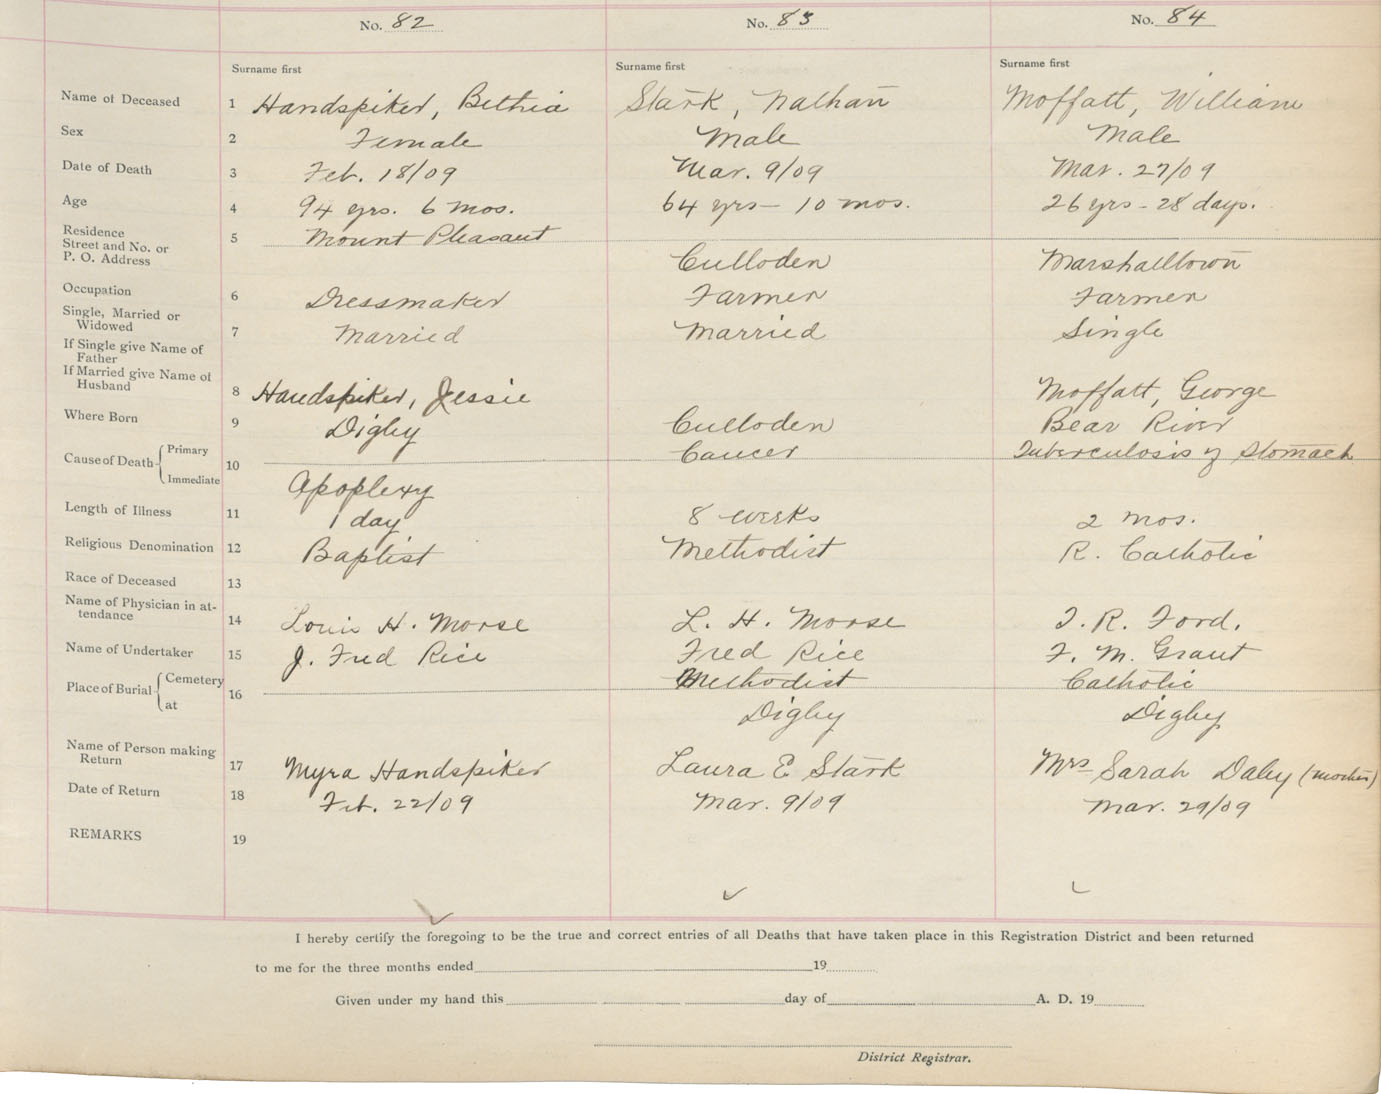 No. 82 No. 83 No. 84
Surname first Surname first Surname first
Name of Deceased 1 Handspiker, Bethia Stark, Nathan Moffatt, William
Sex 2 Female Male Male
Date of Death 3 Feb. 18/09 Mar. 9/09 Mar. 27/09
Age 4 94 yrs. 6 mos. 64 yrs - 10 mos. 26 yrs - 28 days.
Residence
Street and No. or
P. O. Address 5 Mount Pleasant Culloden Marshalltown
Occupation 6 Dressmaker Farmer Farmer
Single, Married or
Widowed 7 Married Married Single
If Single give Name of
Father
If Married give Name of
Husband 8 Handspiker, Jessie Moffatt, George
Where Born 9 Digby Culloden Bear River
Cause of Death Primary 10 Cancer Tuberculosis of Stomach
Immediate Apoplexy
Length of Illness 11 1 day 8 weeks 2 mos.
Religious Denomination 12 Baptist Methodist R. Catholic
Race of Deceased 13
Name of Physician in at-
tendance 14 Louis H. Morse L. H. Morse J. R. Ford.
Name of Undertaker 15 J. Fred Rice Fred Rice F. M. Grant
Place of Burial Cemetery 16 Methodist Catholic
at Digby Digby
Name of Person making
Return 17 Myra Handspiker Laura E Stark Mrs Sarah Daley (mother)
Date of Return 18 Feb. 22/09 Mar. 9/09 Mar. 29/09
REMARKS 19
I hereby certify the foregoing to be the true and correct entries of all Deaths that have taken place in this Registration District and been returned
to me for the three months ended 19
Given under my hand this day of A. D. 19
District Registrar.